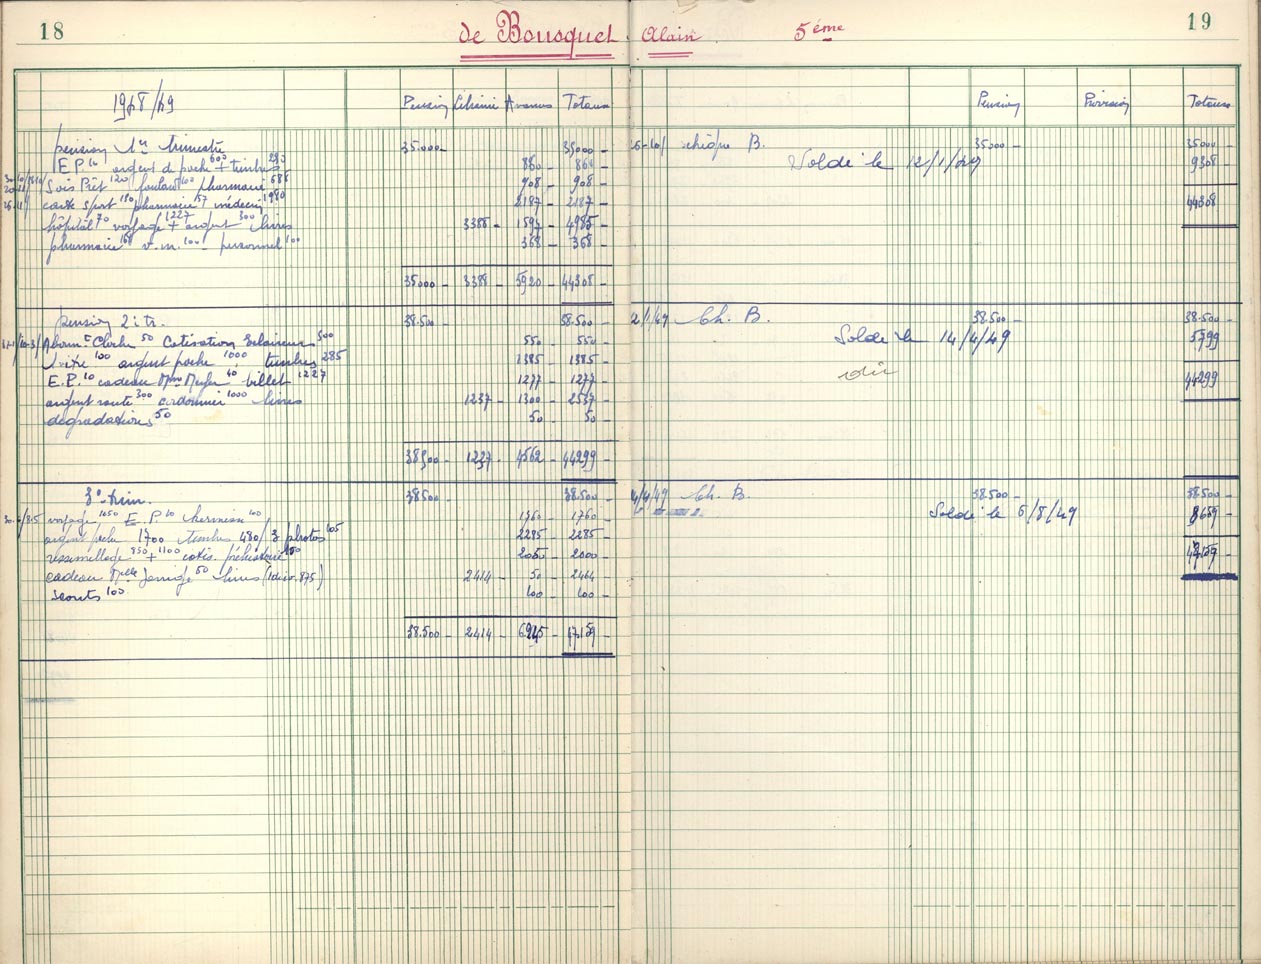 18
de Bousquet Alain 5ème
19
1948/49
Pension Librairie Avances Totaux
Pension Provision Totaux
pension 1er trimestre 35.000 - 35000 -
E.P. 10 argent de poche 600 + timbres 860 - 860 -
Sois Prêt 120 foulard 100 pharmacie 688 908 - 908 -
carte sport pharmacie 157 médecin 2187 - 2187 -
hôpital 70 voyage 1227 + argent 300 livres 3388 - 1597 - 4985 -
pharmacie v.m. 100 personnel 100 368 - 368 -
35.000 - 3388 - 5920 - 44308 -
chèque B. 35.000 - 35.000 -
Soldé le 12/1/49 9308 -
44308
pension 2è tr. 38.500 - 38.500 -
Abonnt Cloche 50 Cotisation Eclaireurs 500 550 - 550 -
vitre 100 argent poche 1000 timbres 285 1385 - 1385 -
E.P. 10 cadeau Mme 40 billet 1227 1277 - 1277 -
argent route 300 cordonnier 1000 livres 1237 - 1300 - 2537 -
dégradations 50 50 - 50 -
38.500 - 1237 - 4562 - 44299 -
2/1/49 Ch. B. 38.500 - 38.500 -
Soldé le 14/4/49 5799
44299
3e trim. 38.500 - 38.500 -
voyage 1650 E.P. 10 100 1760 - 1760 -
argent poche 1700 timbres 480 / 3 photos 105 2285 - 2285 -
ressemellage 850 + 1100 cotis. préhistoire
cadeau Melle 50 livres 2414 - 50 - 2464 -
scouts 100 100 - 100 -
38.500 - 2414 -
4/4/49 Ch. B. 38.500 - 38.500 -
Soldé le 5/8/49 8659